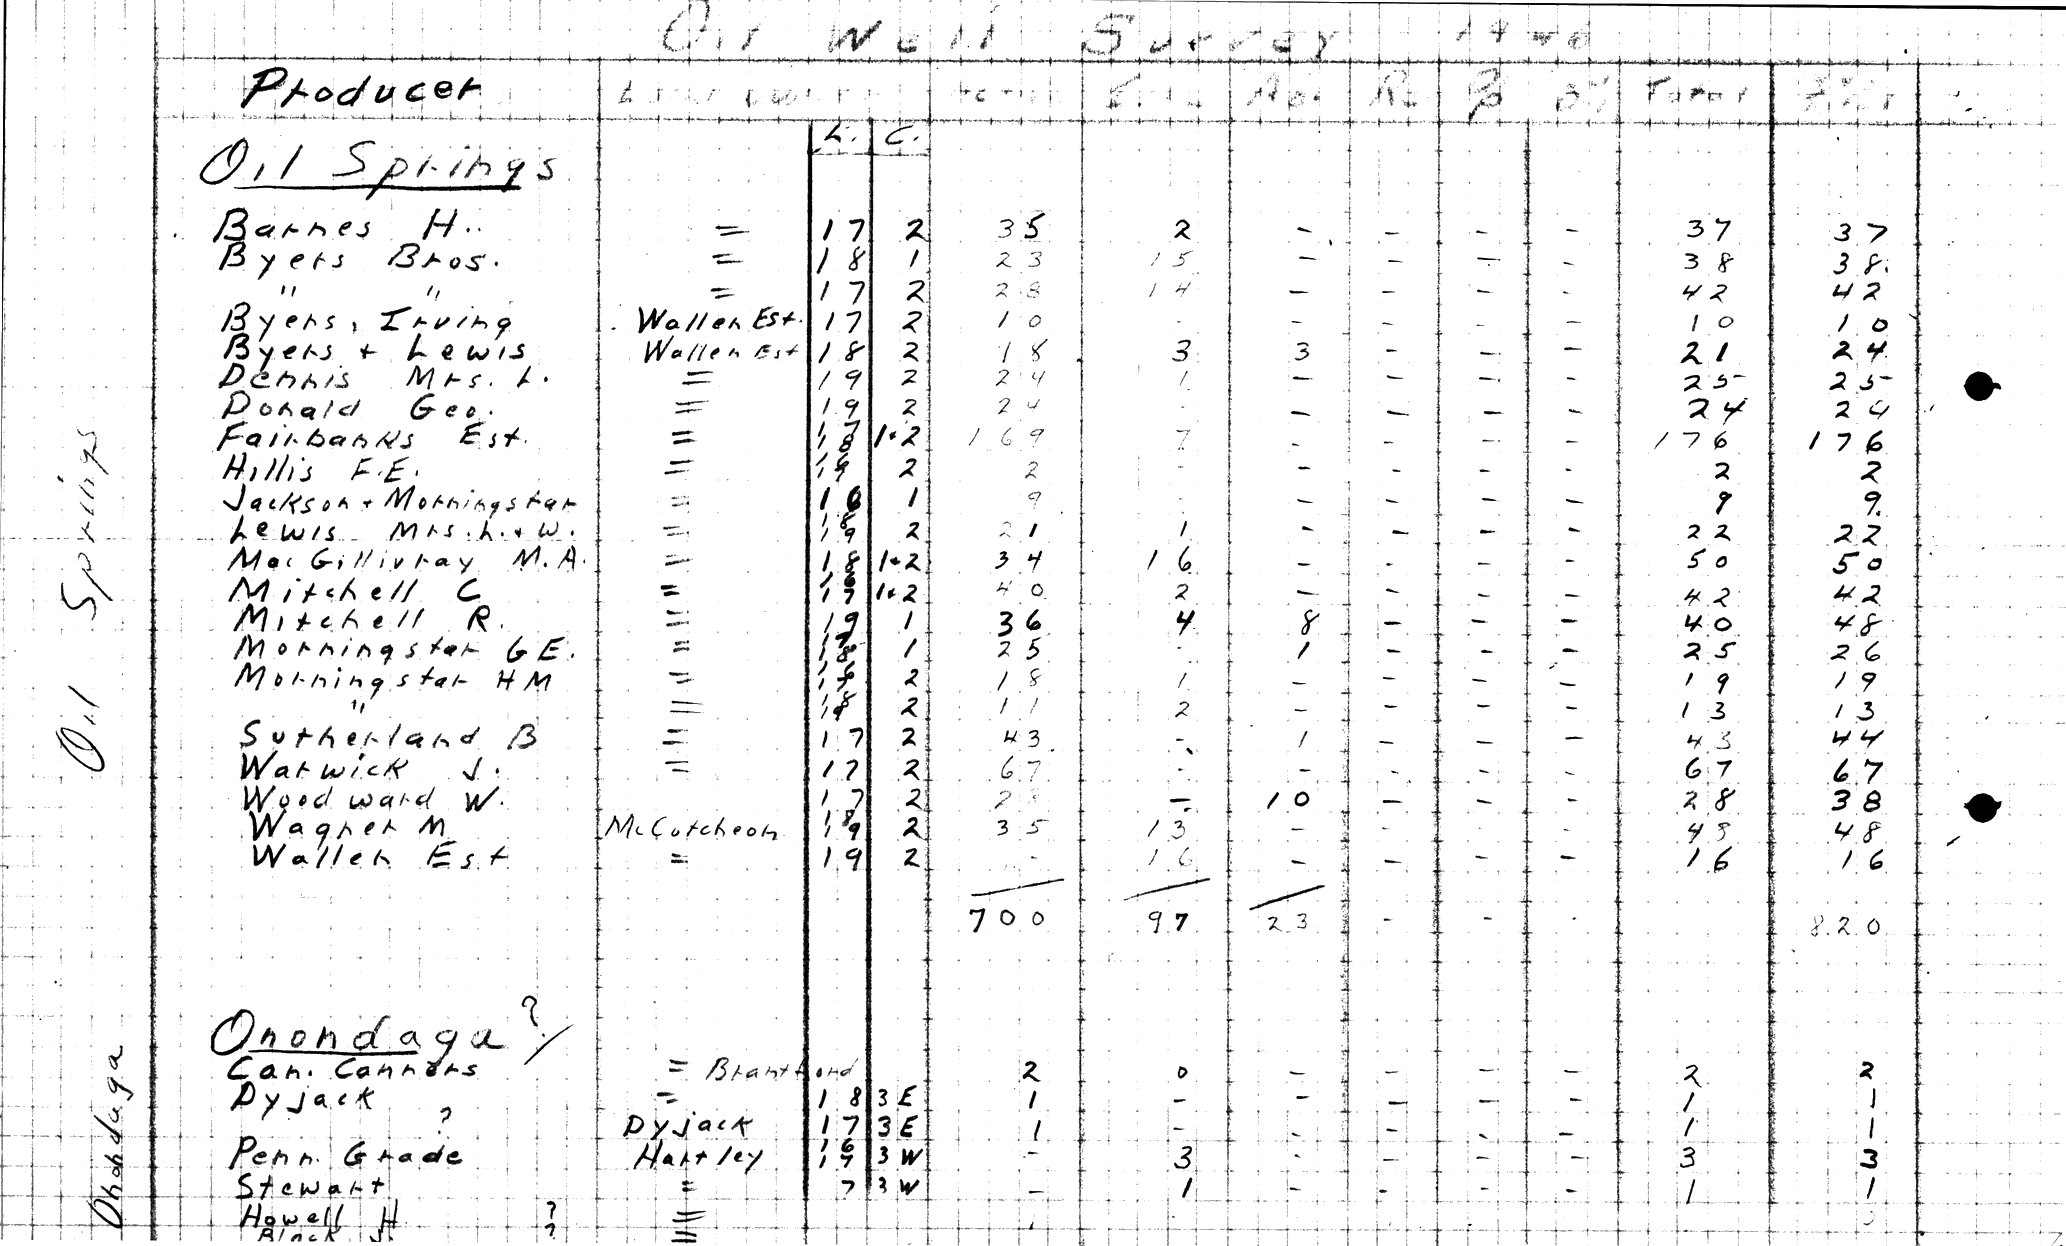 Oil Well Survey
Producer Total
L. C.
Oil Springs
Barnes H. = 17 2 35 2 - - - - 37 37
Byers Bros. = 18 1 23 15 - - - - 38 38
" " = 17 2 28 14 - - - - 42 42
Byers, Irving Wallen Est. 17 2 10 - - - - - 10 10
Byers + Lewis Wallen Est 18 2 18 3 3 - - - 21 24
Dennis Mrs. L. = 19 2 24 1 - - - - 25 25
Donald Geo. = 19 2 24 - - - - - 24 24
Fairbanks Est. = 1+2 169 7 - - - - 176 176
Hillis F.E. = 2 2 - - - - - 2 2
Jackson + Morningstar = 1 9 - - - - - 9 9
Lewis Mrs. L. + W. = 2 21 1 - - - - 22 22
MacGillivray M.A. = 18 1+2 34 16 - - - - 50 50
Mitchell C = 1+2 40 2 - - - - 42 42
Mitchell R. = 19 1 36 4 8 - - - 40 48
Morningstar G E. = 1 25 - 1 - - - 25 26
Morningstar H M = 2 18 1 - - - - 19 19
" = 2 11 2 - - - - 13 13
Sutherland B = 17 2 43 - 1 - - - 43 44
Warwick J. = 17 2 67 - - - - - 67 67
Woodward W. = 17 2 28 - 10 - - - 28 38
Wagner M McCutcheon 2 35 13 - - - - 48 48
Wallen Est = 19 2 - 16 - - - - 16 16
700 97 23 - - - 820
Onondaga ?
Can. Canners = Brantford 2 0 - - - - 2 2
Dyjack = 18 3 E 1 - - - - - 1 1
? Dyjack 17 3 E 1 - - - - - 1 1
Penn. Grade Hartley 3 W - 3 - - - - 3 3
Stewart = 7 3 W - 1 - - - - 1 1
Howell H ? =
Black J. ? =
Oil Springs
Onondaga